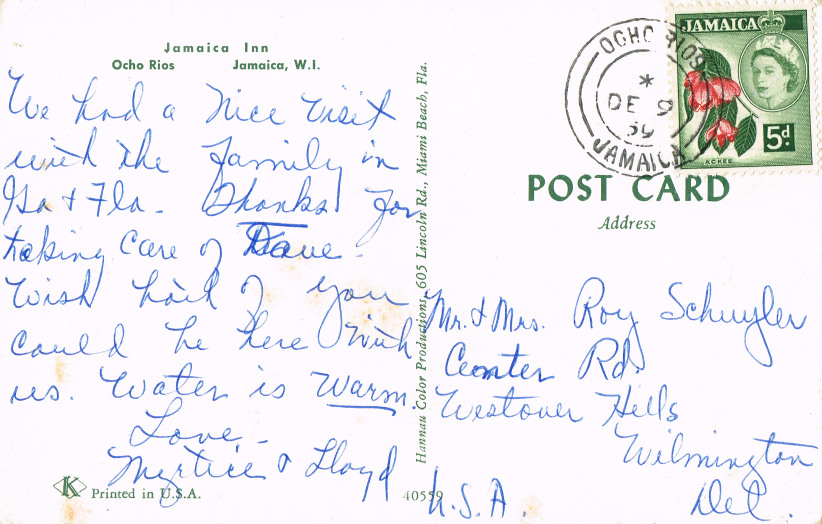 Jamaica Inn
Ocho Rios Jamaica, W.I.
We had a nice visit
with the family in
Ga & Fla. Thanks for
taking care of Dave.
Wish both of you
could be here with
us. Water is warm.
Love -
Myrtice & Lloyd
K Printed in U.S.A.
40559
Hannau Color Productions, 605 Lincoln Rd., Miami Beach, Fla.
OCHO RIOS
*
DE 9
JAMAICA
JAMAICA
ACKEE
5d
POST CARD
Address
Mr. & Mrs. Roy Schuyler
Center Rd.
Westover Hills
Wilmington
Del.
U.S.A.